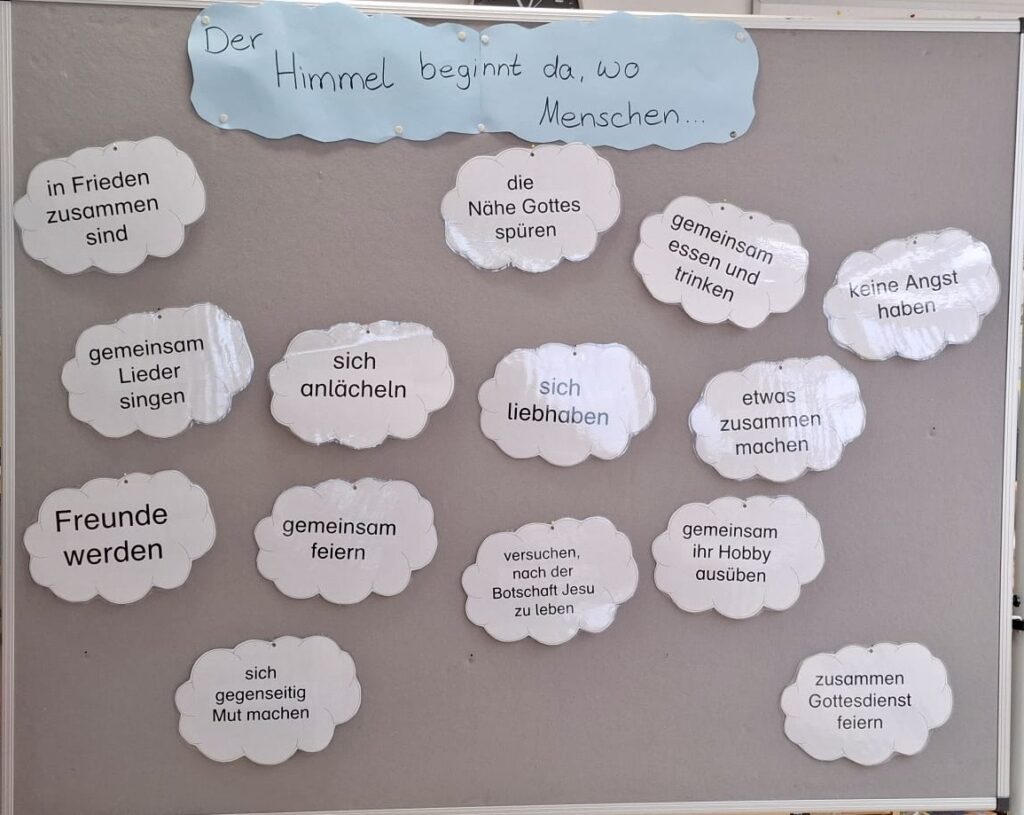 Der
Himmel beginnt da, wo
Menschen...
in Frieden
zusammen
sind
die
Nähe Gottes
spüren
gemeinsam
essen und
trinken
keine Angst
haben
gemeinsam
Lieder
singen
sich
anlächeln
sich
liebhaben
etwas
zusammen
machen
Freunde
werden
gemeinsam
feiern
versuchen,
nach der
Botschaft Jesu
zu leben
gemeinsam
ihr Hobby
ausüben
sich
gegenseitig
Mut machen
zusammen
Gottesdienst
feiern